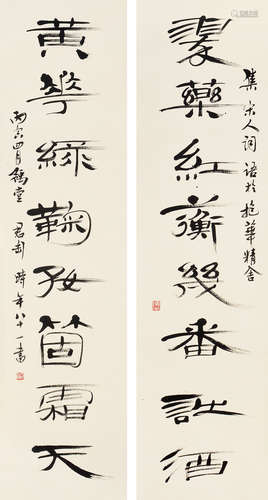 集宋人詞語於抱華精舍
翠藥紅蘅幾番詩酒
黃花綠鞠好箇霜天
丙寅四月豫堂君匋時年八十一書